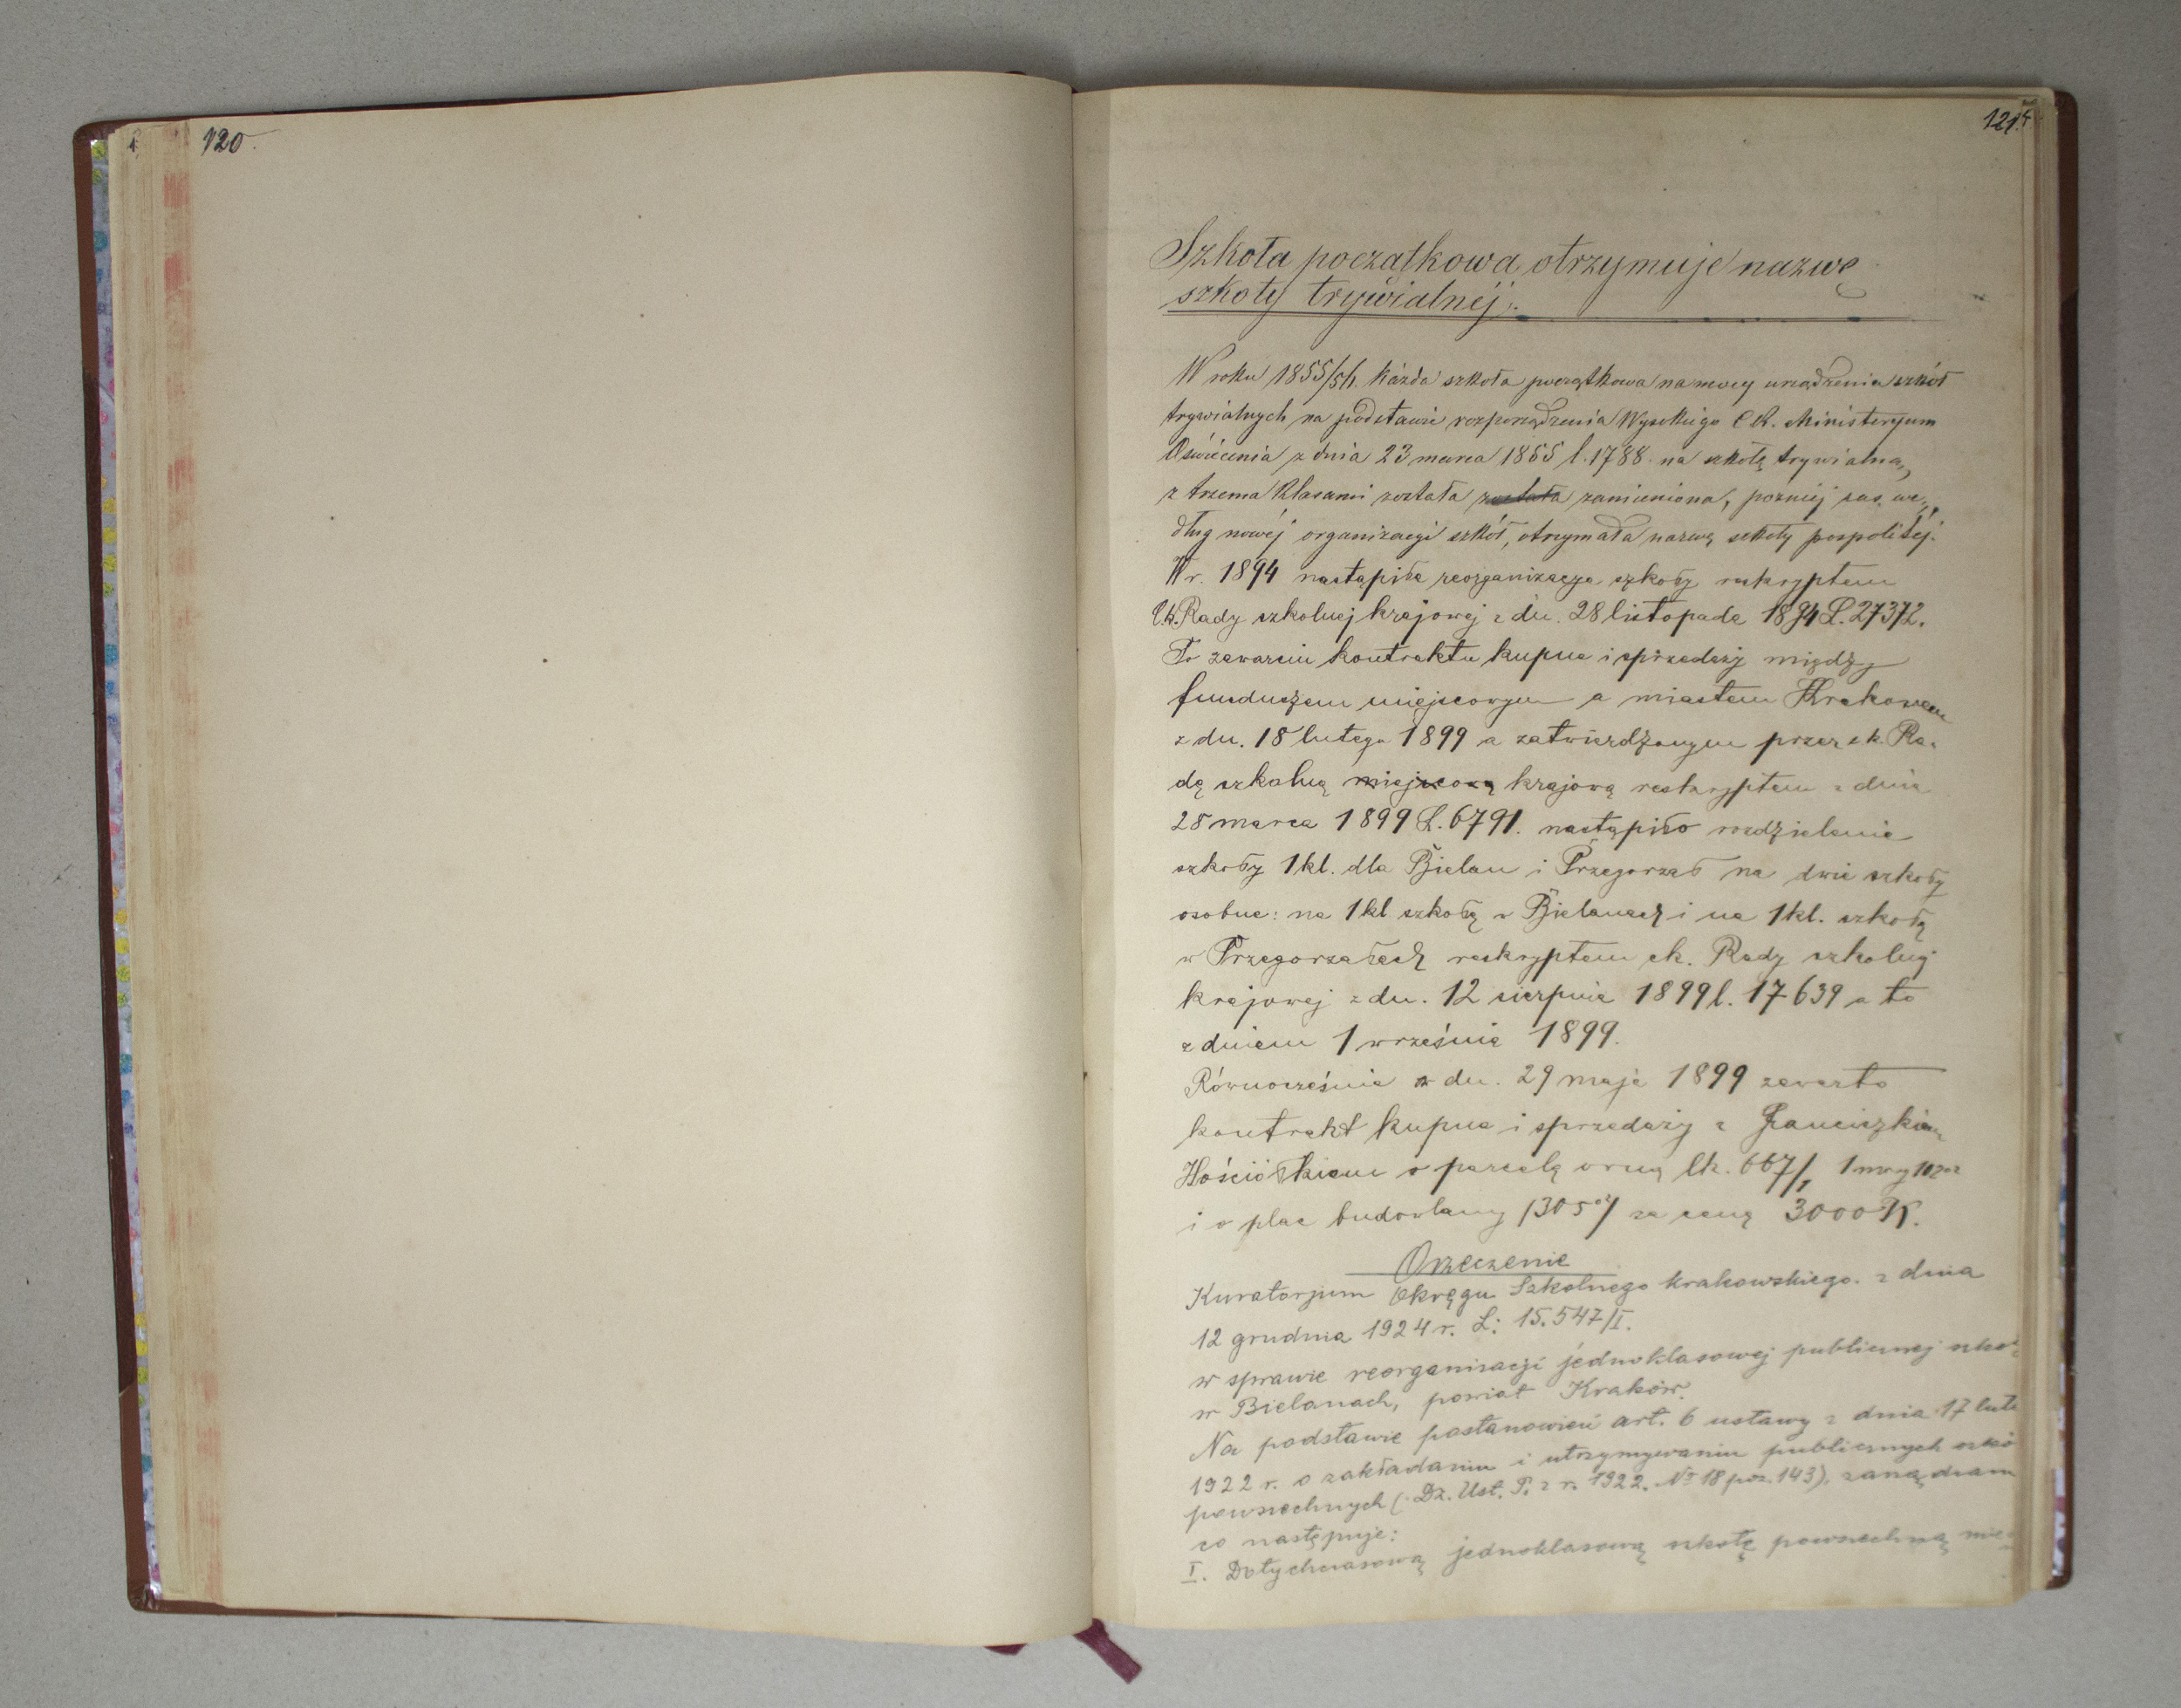 120.
121.
Szkoła początkowa otrzymuje nazwę
szkoły trywialnéj.
W roku 1855/56. każda szkoła początkowa na mocy urządzenia szkół
trywialnych na podstawie rozporządzenia Wysokiego C.K. Ministeryum
Oświecenia z dnia 23 marca 1855 l. 1788. na szkołę trywialną,
z trzema klasami została została zamieniona, pozniéj zaś, we„
dług nowéj organizacyi szkół, otrzymała nazwę szkoły pospolitéj.
W r. 1894 nastąpiła reorganizacya szkoły reskryptem
C.k. Rady szkolnej krajowej z dn. 28 listopada 1894 L. 27372.
Po zawarciu kontraktu kupna i sprzedaży między
funduszem miejscowym a miastem Krakowem
z dn. 18 lutego 1899 a zatwierdzonym przez c.k. Ra„
dę szkolną miejscową krajową reskryptem z dnia
28 marca 1899 L. 6791. nastąpiło rozdzielenie
szkoły 1kl. dla Bielan i Przegorzał na dwie szkoły
osobne: na 1kl szkołę w Bielanach i na 1kl. szkołę
w Przegorzałach reskryptem ck. Rady szkolnej
krajowej z dn. 12 sierpnia 1899 l. 17639 a to
z dniem 1 września 1899.
Równocześnie z dn. 29 maja 1899 zawarto
kontrakt kupna i sprzedaży z Franciszkiem
Kościółkiem o parcelę orną lk. 667/1 1 morg
i o plac budowlany (305) za cenę 3000 K.
Orzeczenie
Kuratorjum Okręgu Szkolnego krakowskiego. z dnia
12 grudnia 1924 r. L: 15.547/I.
w sprawie reorganizacji jednoklasowej publicznej szko
w Bielanach, powiat Kraków.
Na podstawie postanowień art. 6 ustawy z dnia 17 lute
1922 r. o zakładaniu i utrzymywaniu publicznych szkó
powszechnych (Dz. Ust. P. z r. 1922. № 18 poz. 143). zarządzam
co następuje:
I. Dotychczasową jednoklasową szkołę powszechną